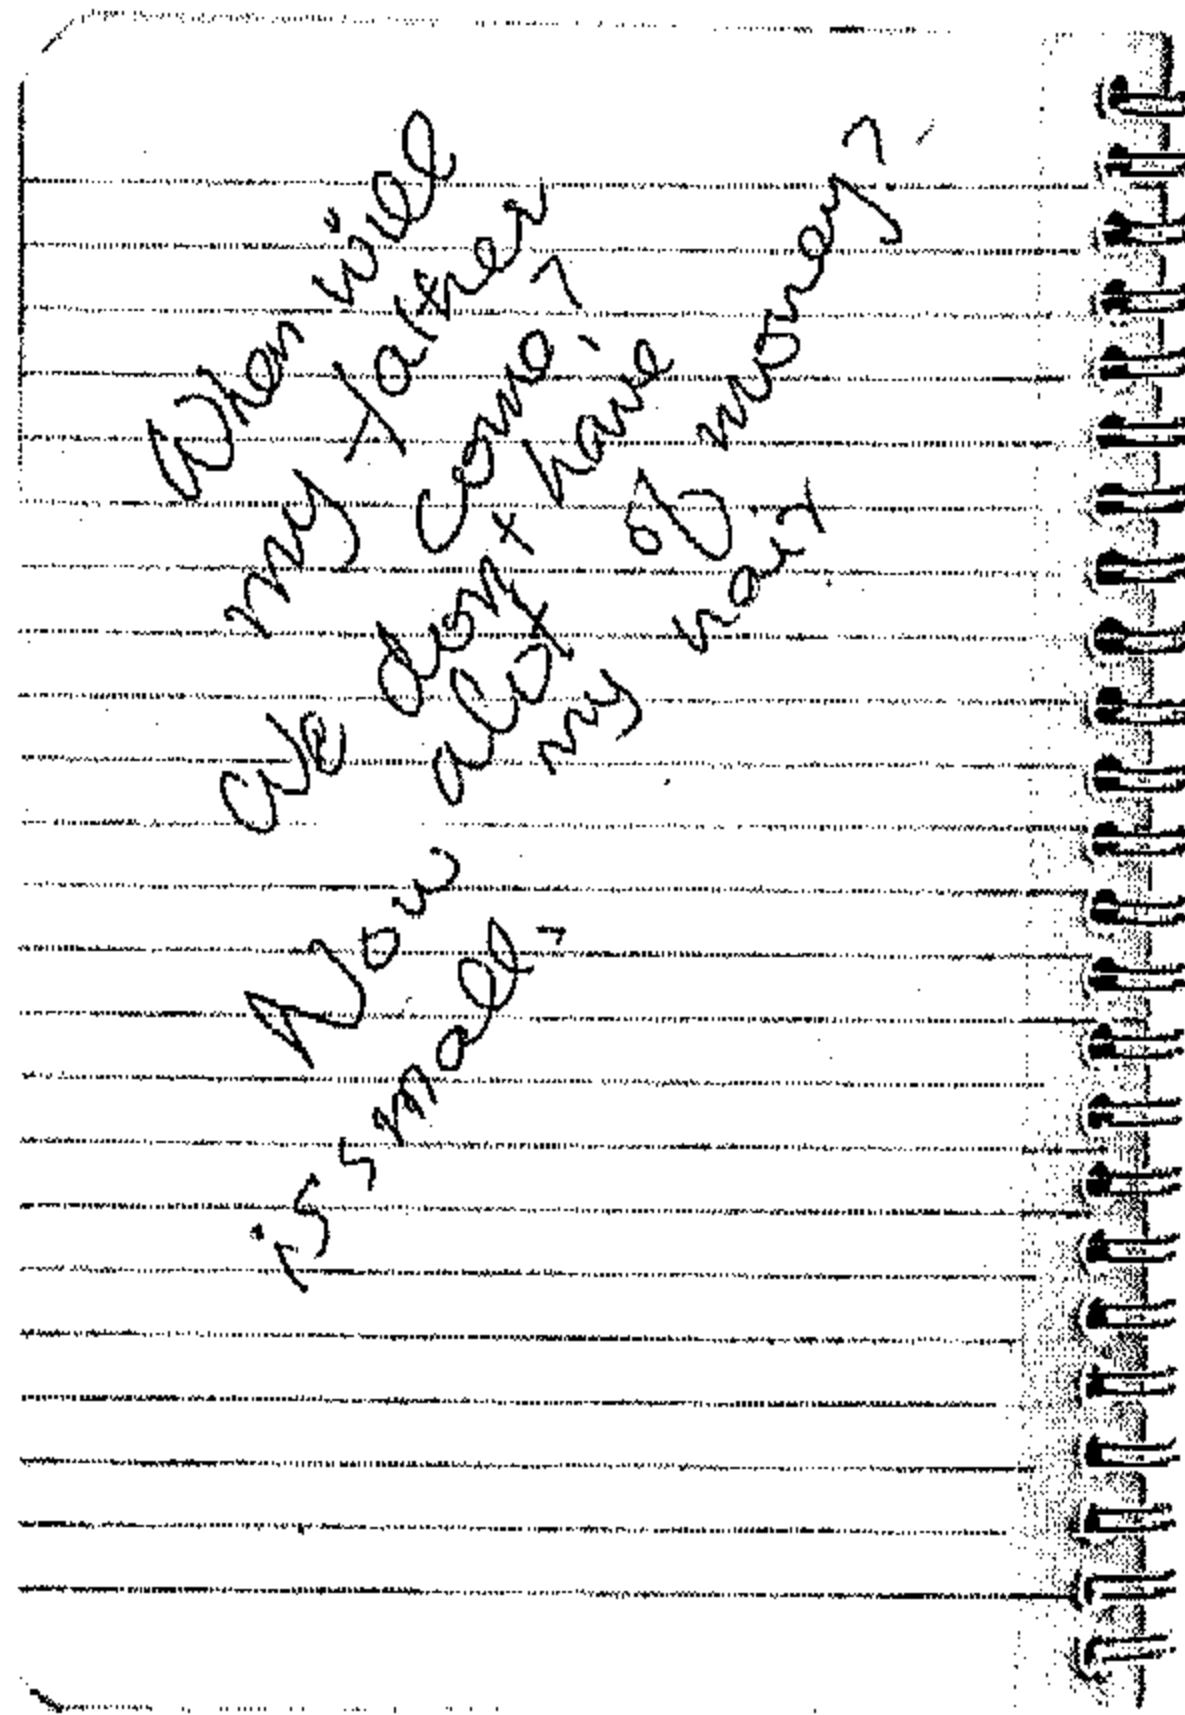 When will
my father
come?
We dont have
alot of money?
Now my hair
is small.